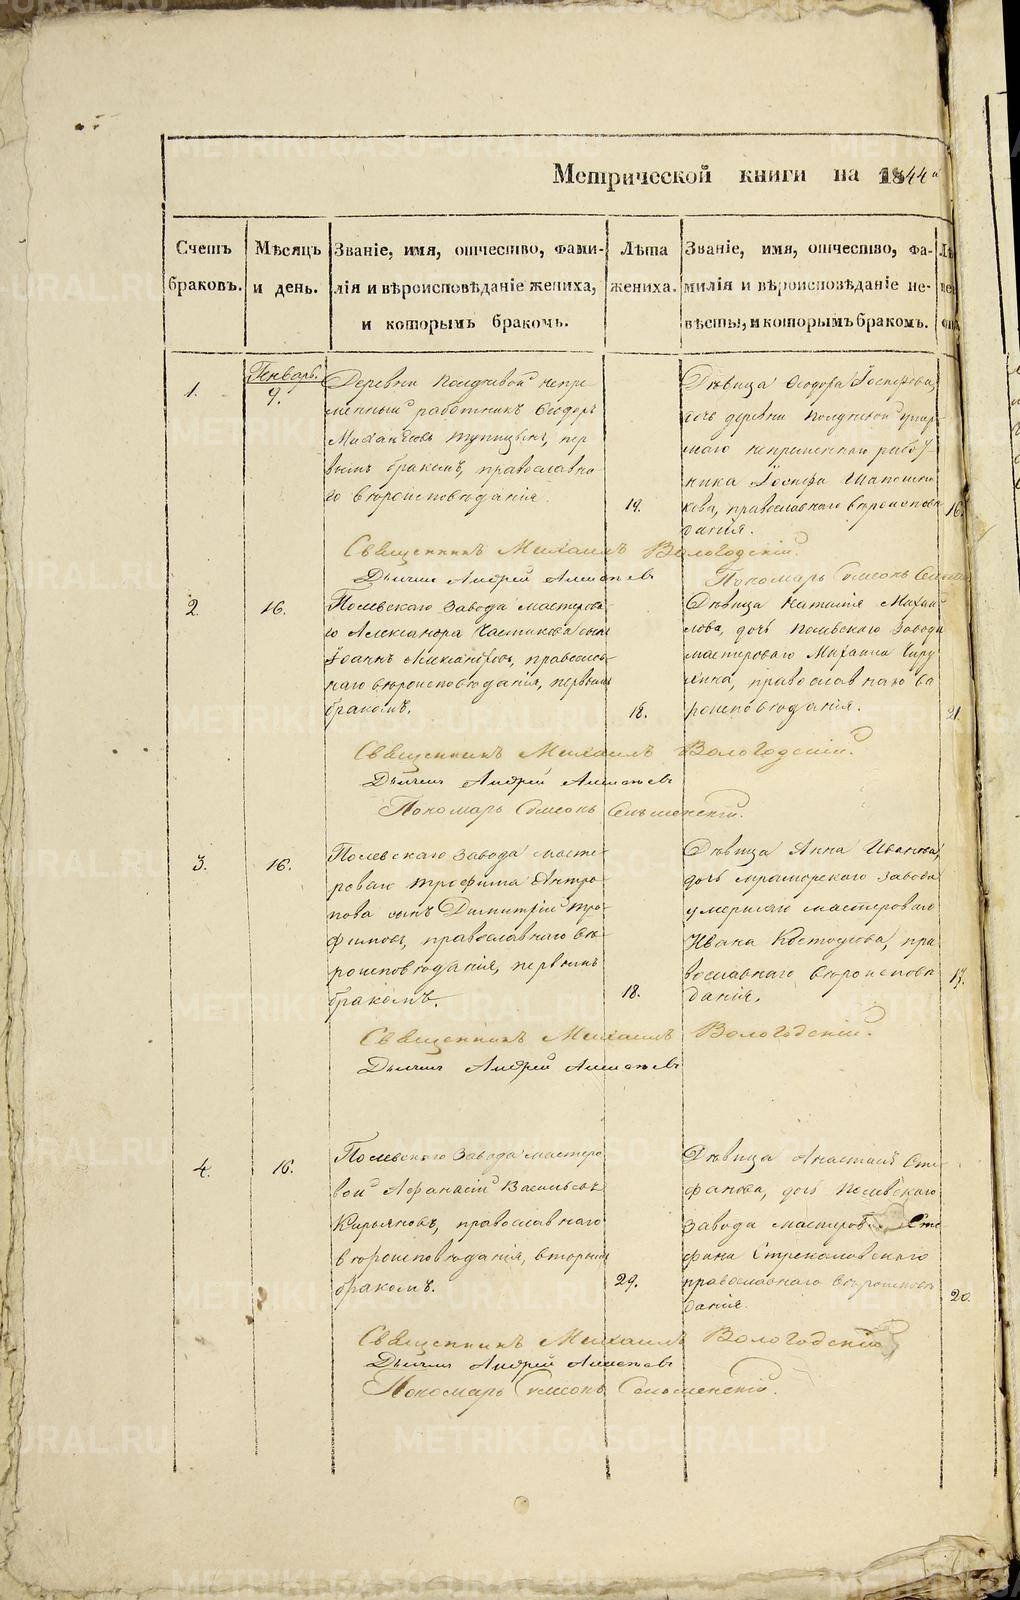 Метрической книги на 1844й
Счетъ
браковъ.
Мѣсяцъ
и день.
Званіе, имя, отчество, фами-
лія и вѣроисповѣданіе жениха,
и которымъ бракомъ.
Лѣта
жениха.
Званіе, имя, отчество, фа-
милія и вѣроисповѣданіе не-
вѣсты, и которымъ бракомъ.
1.
Генварь.
9.
Деревни Полдневой непре-
менный работникъ Ѳеодоръ
Михаиловъ пер
вымъ бракомъ, православна
го вѣроисповѣданія.
19.
Дѣвица Ѳеодора Іосифова,
дочь деревни Полдневой умер
шаго непременнаго работ
ника Іосифа Шапошни
кова, православнаго вѣроисповѣ
данія.
16.
Священникъ Михаилъ Вологодскій.
Дьячекъ Андрей Алексѣевъ
Пономарь Симеонъ
2.
16.
Полевскаго завода мастерова
го Александра Частикова сынъ
Іоаннъ Александровъ, православ
наго вѣроисповѣданія, первымъ
бракомъ.
18.
Дѣвица Наталія Михаи
лова, дочь Полевскаго завода
мастероваго Михаила
православнаго вѣ
роисповѣданія.
21.
Священникъ Михаилъ Вологодскій.
Дьячекъ Андрей Алексѣевъ
Пономарь Симеонъ
3.
16.
Полевскаго завода масте-
роваго Трофима Антро
пова сынъ Димитрій Тро
фимовъ, православнаго вѣ
роисповѣданія, первымъ
бракомъ.
18.
Дѣвица Анна Иванова,
дочь Мраморскаго завода
умершаго мастероваго
Ивана пра
вославнаго вѣроисповѣ
данія.
17.
Священникъ Михаилъ Вологодскій.
Дьячекъ Андрей Алексѣевъ
4.
16.
Полевскаго завода мастеро
вой Афанасій Васильевъ
Кирьяновъ, православнаго
вѣроисповѣданія, вторымъ
бракомъ.
29.
Дѣвица Анастасія Сте
фанова, дочь Полевскаго
завода мастеров Сте
фана Стрекаловскаго
православнаго вѣроисповѣ
данія.
20.
Священникъ Михаилъ Вологодскій
Дьячекъ Андрей Алексѣевъ
Пономарь Симеонъ
METRIKI.GASO-URAL.RU